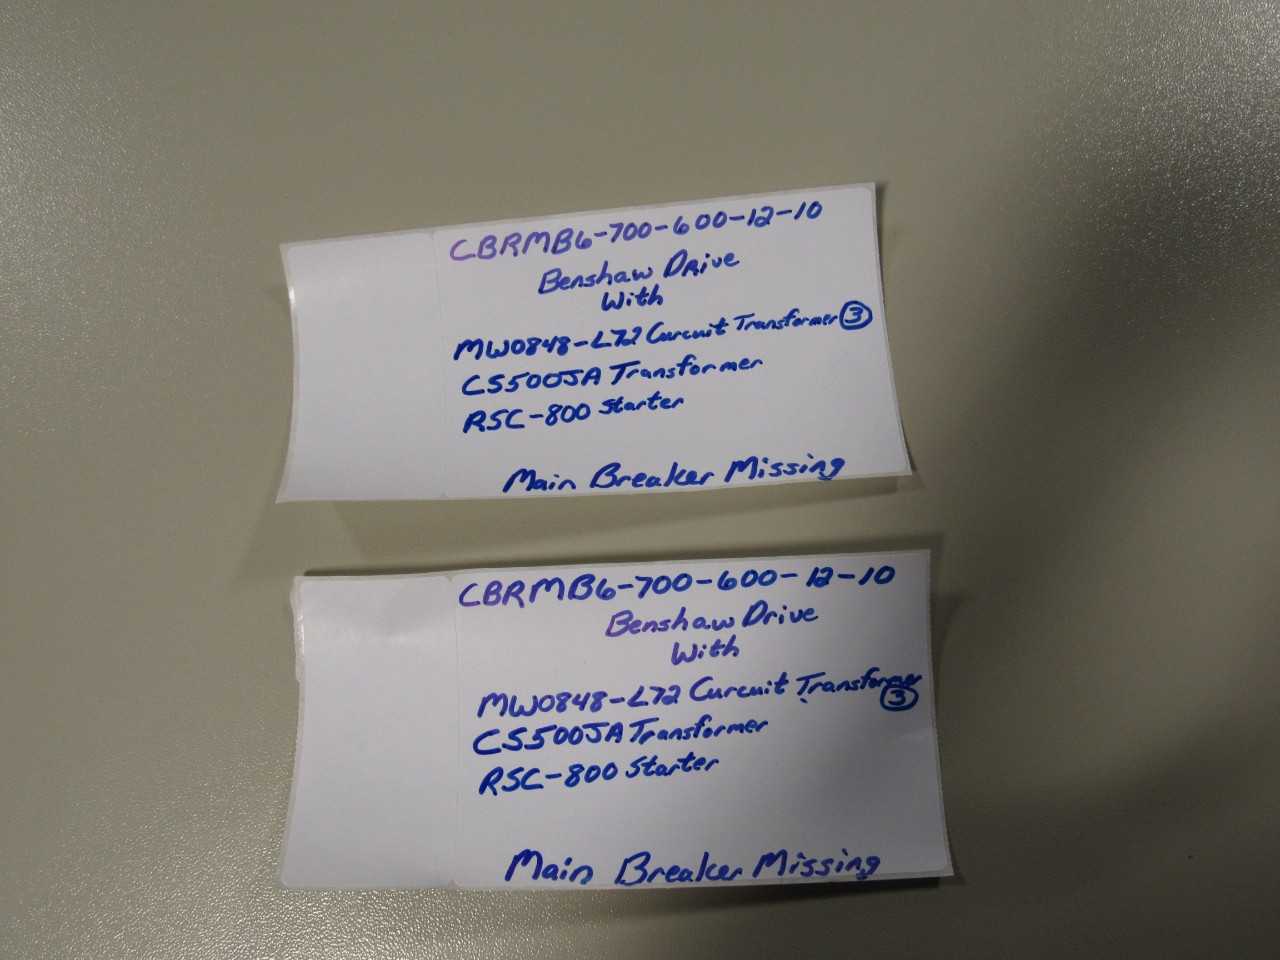 CBRMB6-700-600-12-10
Benshaw Drive
With
MW0848-L72 Curcuit Transformer 3
CS500JA Transformer
RSC-800 Starter
Main Breaker Missing
CBRMB6-700-600-12-10
Benshaw Drive
With
MW0848-L72 Curcuit Transformer
3
CS500JA Transformer
RSC-800 Starter
Main Breaker Missing